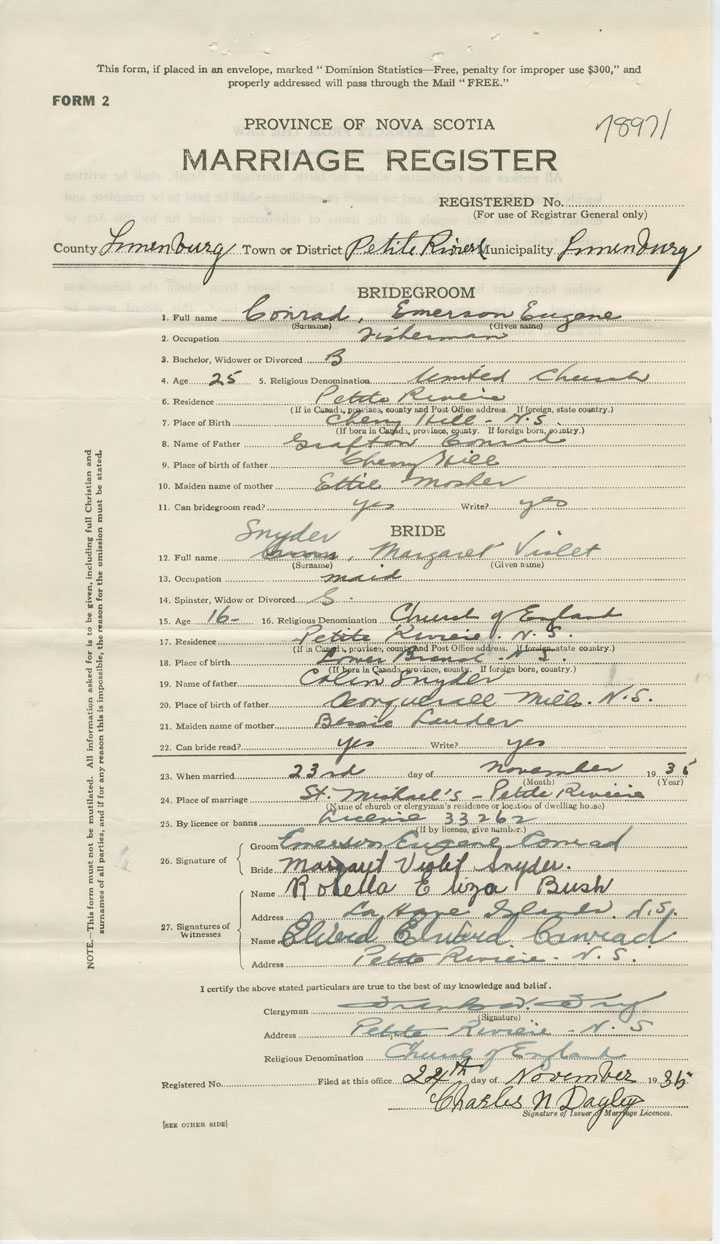 This form, if placed in an envelope, marked "Dominion Statistics—Free, penalty for improper use $300," and
properly addressed will pass through the Mail "FREE."
FORM 2
PROVINCE OF NOVA SCOTIA
78971
MARRIAGE REGISTER
REGISTERED No.
(For use of Registrar General only)
County Lunenburg Town or District Petite Riviere Municipality Lunenburg
BRIDEGROOM
1. Full name Conrad, Emerson Eugene
(Surname) (Given name)
2. Occupation Fisherman
3. Bachelor, Widower or Divorced B
4. Age 25 5. Religious Denomination United Church
6. Residence Petite Riviere
(If in Canada, province, county and Post Office address. If foreign, state country.)
7. Place of Birth Cherry Hill - N.S.
(If born in Canada, province, county. If foreign born, country.)
8. Name of Father Grafton Conrad
9. Place of birth of father Cherry Hill
10. Maiden name of mother Ettie Mosher
11. Can bridegroom read? yes Write? yes
BRIDE
Snyder
12. Full name , Margaret Violet
(Surname) (Given name)
13. Occupation maid
14. Spinster, Widow or Divorced S
15. Age 16- 16. Religious Denomination Church of England
17. Residence Petite Riviere. N.S.
(If in Canada, province, county and Post Office address. If foreign, state country.)
18. Place of birth N.S.
(If born in Canada, province, county. If foreign born, country.)
19. Name of father Colin Snyder
20. Place of birth of father Mills. N.S.
21. Maiden name of mother Bessie
22. Can bride read? yes Write? yes
23. When married 23rd day of November 1935
(Month) (Year)
24. Place of marriage St. Michael's - Petite Riviere
(Name of church or clergyman's residence or location of dwelling house)
25. By licence or banns License 33262
(If by licence, give number.)
26. Signature of
Groom Emerson Eugene Conrad
Bride Margaret Violet Snyder.
27. Signatures of Witnesses
Name Rosella Eliza Bush
Address La Have Islands. N.S.
Name Edward Conrad
Address Petite Riviere - N.S.
I certify the above stated particulars are true to the best of my knowledge and belief.
Clergyman
(Signature)
Address Petite Riviere - N.S
Religious Denomination Church of England
Registered No. Filed at this office day of November 1935
Charles N Dagley
Signature of Issuer Marriage Licences.
[SEE OTHER SIDE]
NOTE.—This form must not be mutilated. All information asked for is to be given, including full Christian and
surnames of all parties, and if for any reason this is impossible, the reason for the omission must be stated.